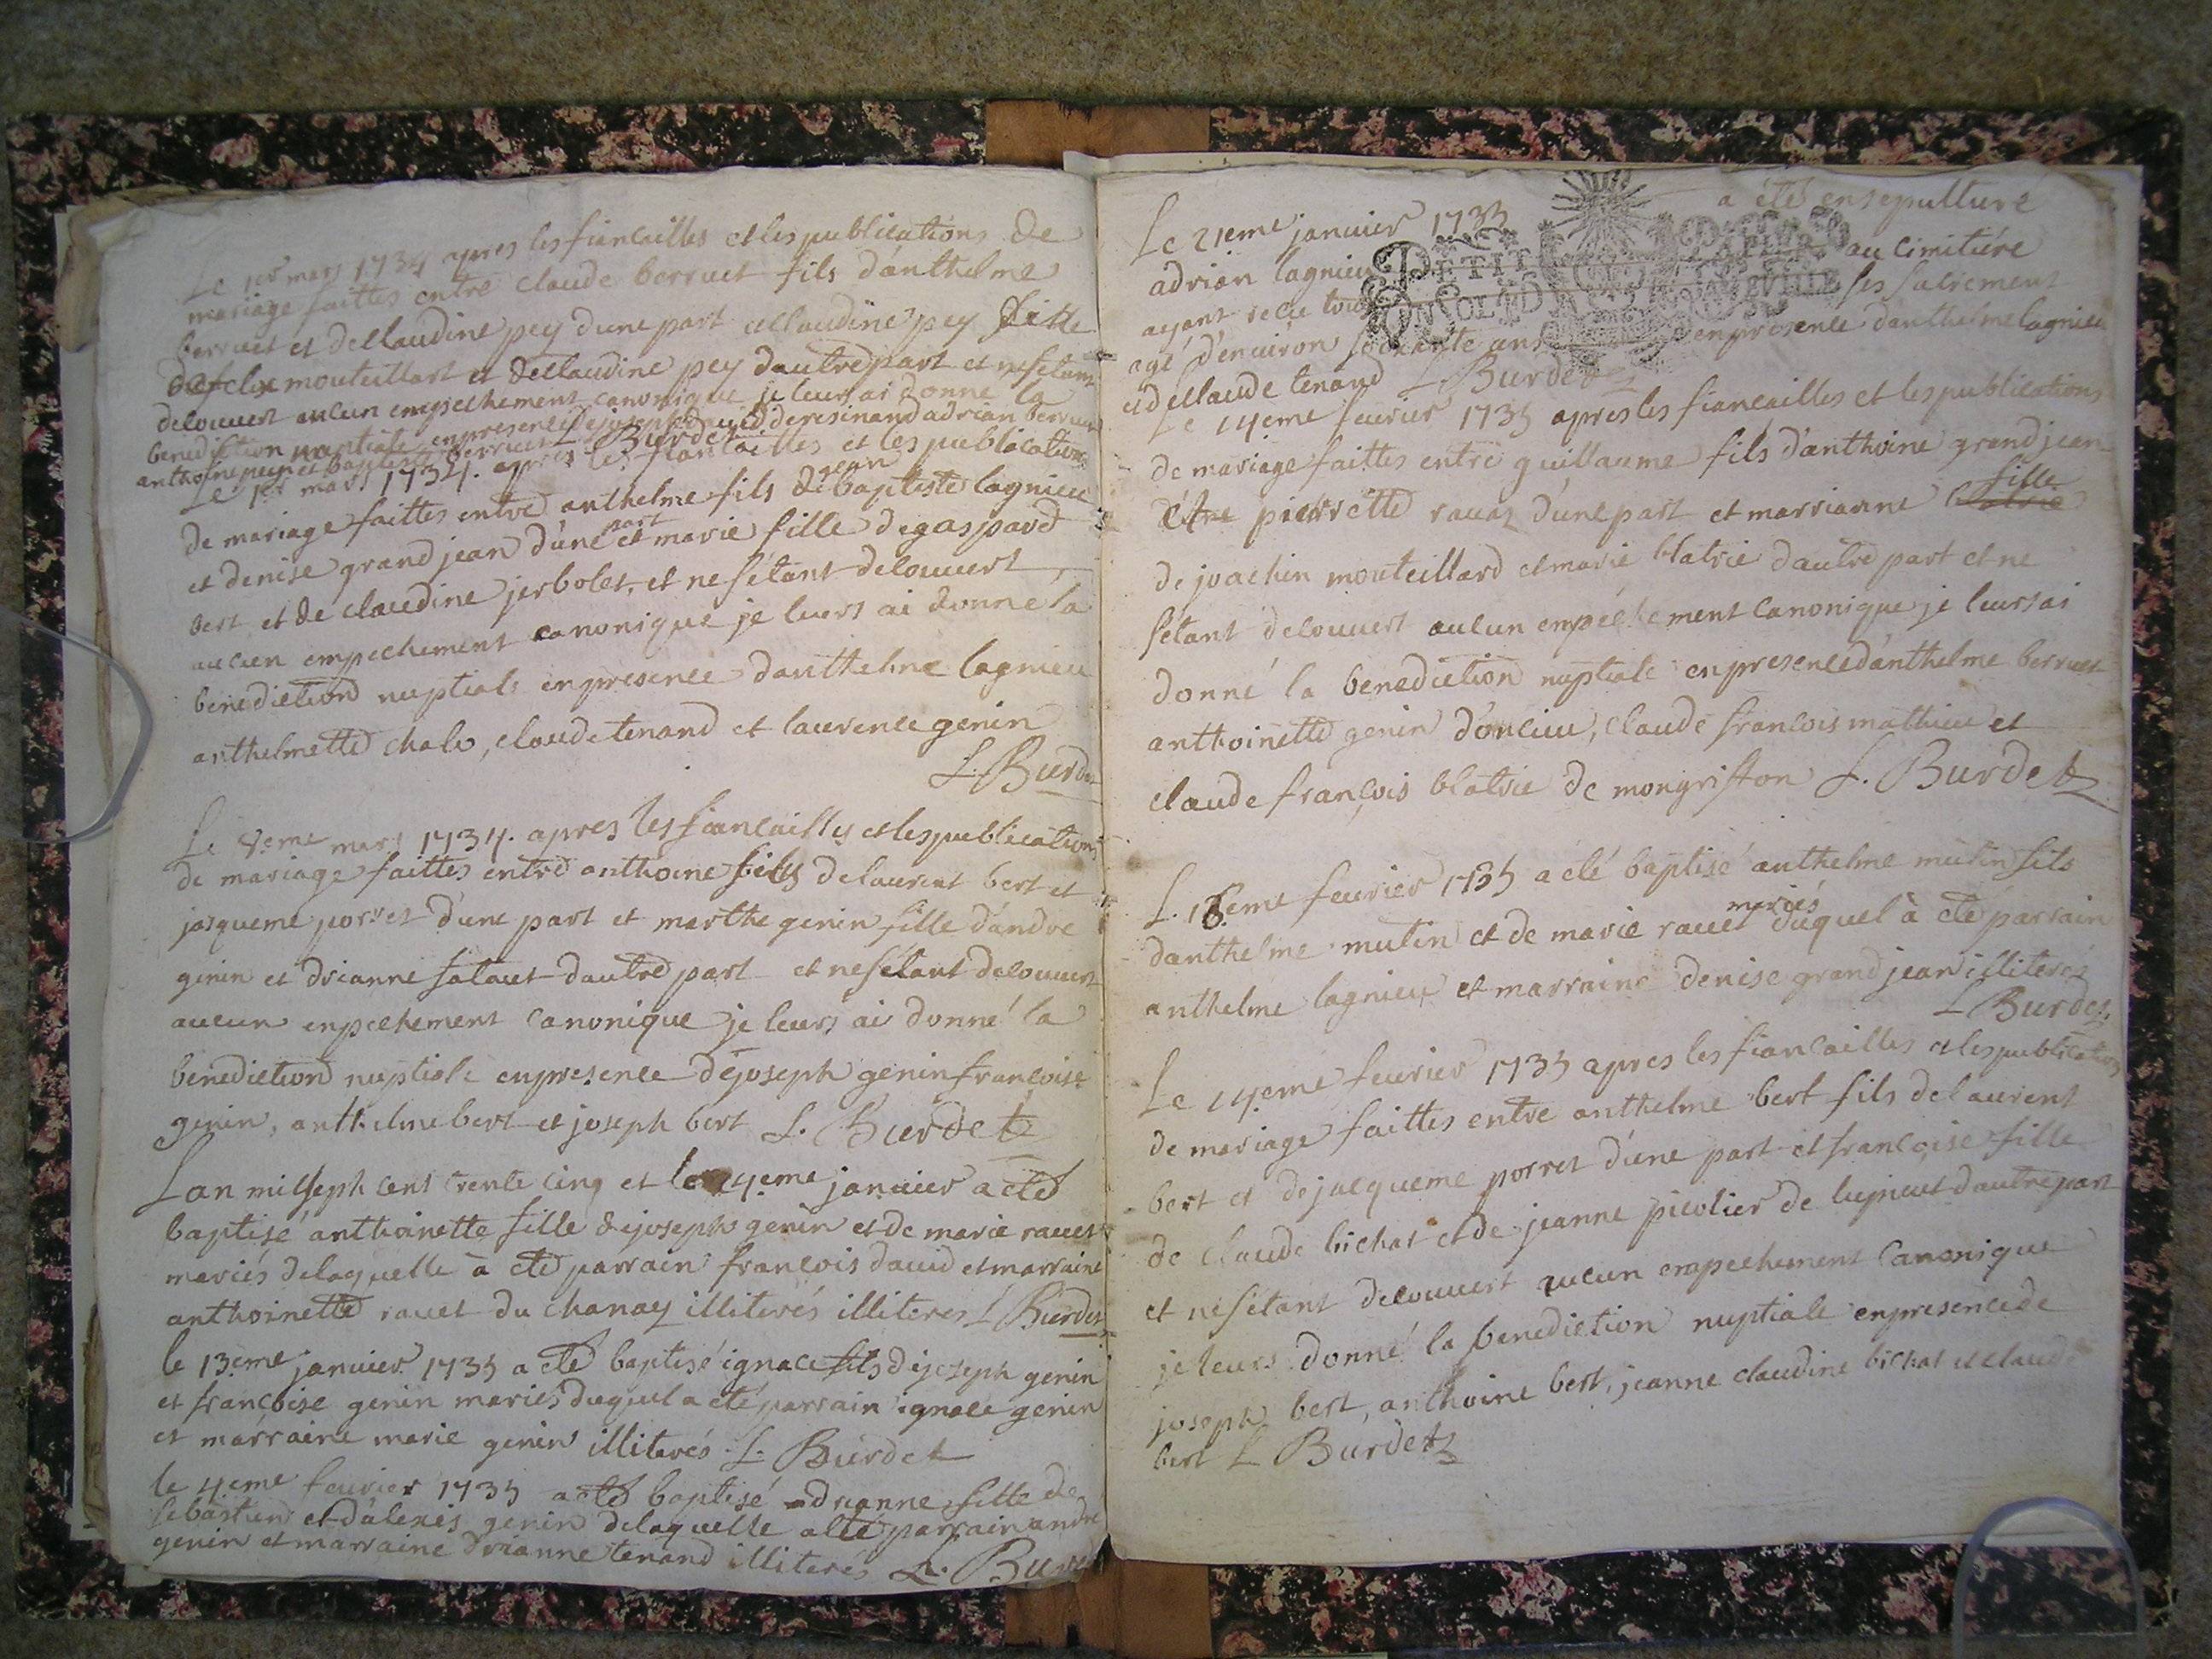 Le 1er mars 1734 apres les fiancailles et les publications de
mariage faittes entre claude berruet fils danthelme
berruet et declaudine pey dune part et claudine pey fille
de felix monteillart et declaudine pey dautre part et ne setant
decouvert aucun empechement canonique je leurs ai donne la
benediction nuptiale en presence de joseph david de resinand adrian berruet
anthoine pegn et baptiste berruet L. Burdet
Le 1er mars 1734. apres les fiancailles et les publications
de mariage faittes entre anthelme fils de jean baptiste lagnieu
et denise grand jean d'une part et marie fille de gaspard
bert et de claudine jerbolet, et ne sétant decouvert
aucun empechement canonique je leurs ai donne la
benediction nuptiale en presence danthelme lagnieu
anthelmette chalo, claude tenand et laurence genin
L. Burdet
Le 8eme mars 1734. apres les fiancailles et les publications
de mariage faittes entre anthoine fils de laurent bert et
jaqueme porret d'une part et marthe genin fille d'andre
genin et drianne salaut dautre part et ne sétant decouvert
aucun enpechement canonique je leurs ai donné la
benediction nuptiale en presence de joseph genin francoise
genin, anthelme bert et joseph bert L. Burdet
Lan mil seph cent trente cinq et le 4eme janvier a eté
baptisé anthoinette fille de joseph genin et de marie ravet
mariés delaquelle à eté parrain francois david et marraine
anthoinette ravet du chanay illiterés illiteres L Burdet
le 13eme janvier 1735 a eté baptisé ignace fils de joseph genin
et françoise genin mariés duquel a eté parrain ignace genin
et marraine marie genin illiterés L. Burdet
le 4eme fevrier 1735 a eté baptisé adrianne fille de
sebastien et d'alexis genin delaquelle a eté parrain andre
genin et marraine drianne tenand illiterés L. Burdet
Le 21eme janvier 1735 a été ensepulturé
adrian lagnieu au cimitiére
ayant reçu tous ses sacrement
agé d'environ soixante ans en presence danthelme lagnieu
et declaude tenand L Burdet
PETIT PAPIER
Le 14eme fevrier 1735 apres les fiancailles et les publications
de mariage faittes entre guillaume fils d'anthoine grand jean
et pierrette ravaz d'une part et marrianne fille
de joachin monteillard et marie blatrie dautre part et ne
sétant decouvert aucun empéchement canonique je leurs ai
donné la benediction nuptiale en presence d'anthelme berruet
anthoinette genin d'oncieu, claude francois mathieu et
claude françois blatrie de mongriffon L. Burdet
L. 18eme fevrier 1735 a eté baptisé anthelme mutin fils
danthelme mutin et de marie ravet mariés duquel à eté parrain
anthelme lagnieu et marraine denise grand jean illiterés
L Burdet
Le 14eme fevrier 1735 apres les fiancailles et les publications
de mariage faittes entre anthelme bert fils de laurent
bert et de jacqueme porret d'une part et francoise fille
de claude bichat et de jeanne picolier de lupieut dautre part
et ne sétant decouvert aucun empechement canonique
je leurs donné la benediction nuptiale en presence de
joseph bert, anthoine bert, jeanne claudine bichat et claude
bert L Burdet